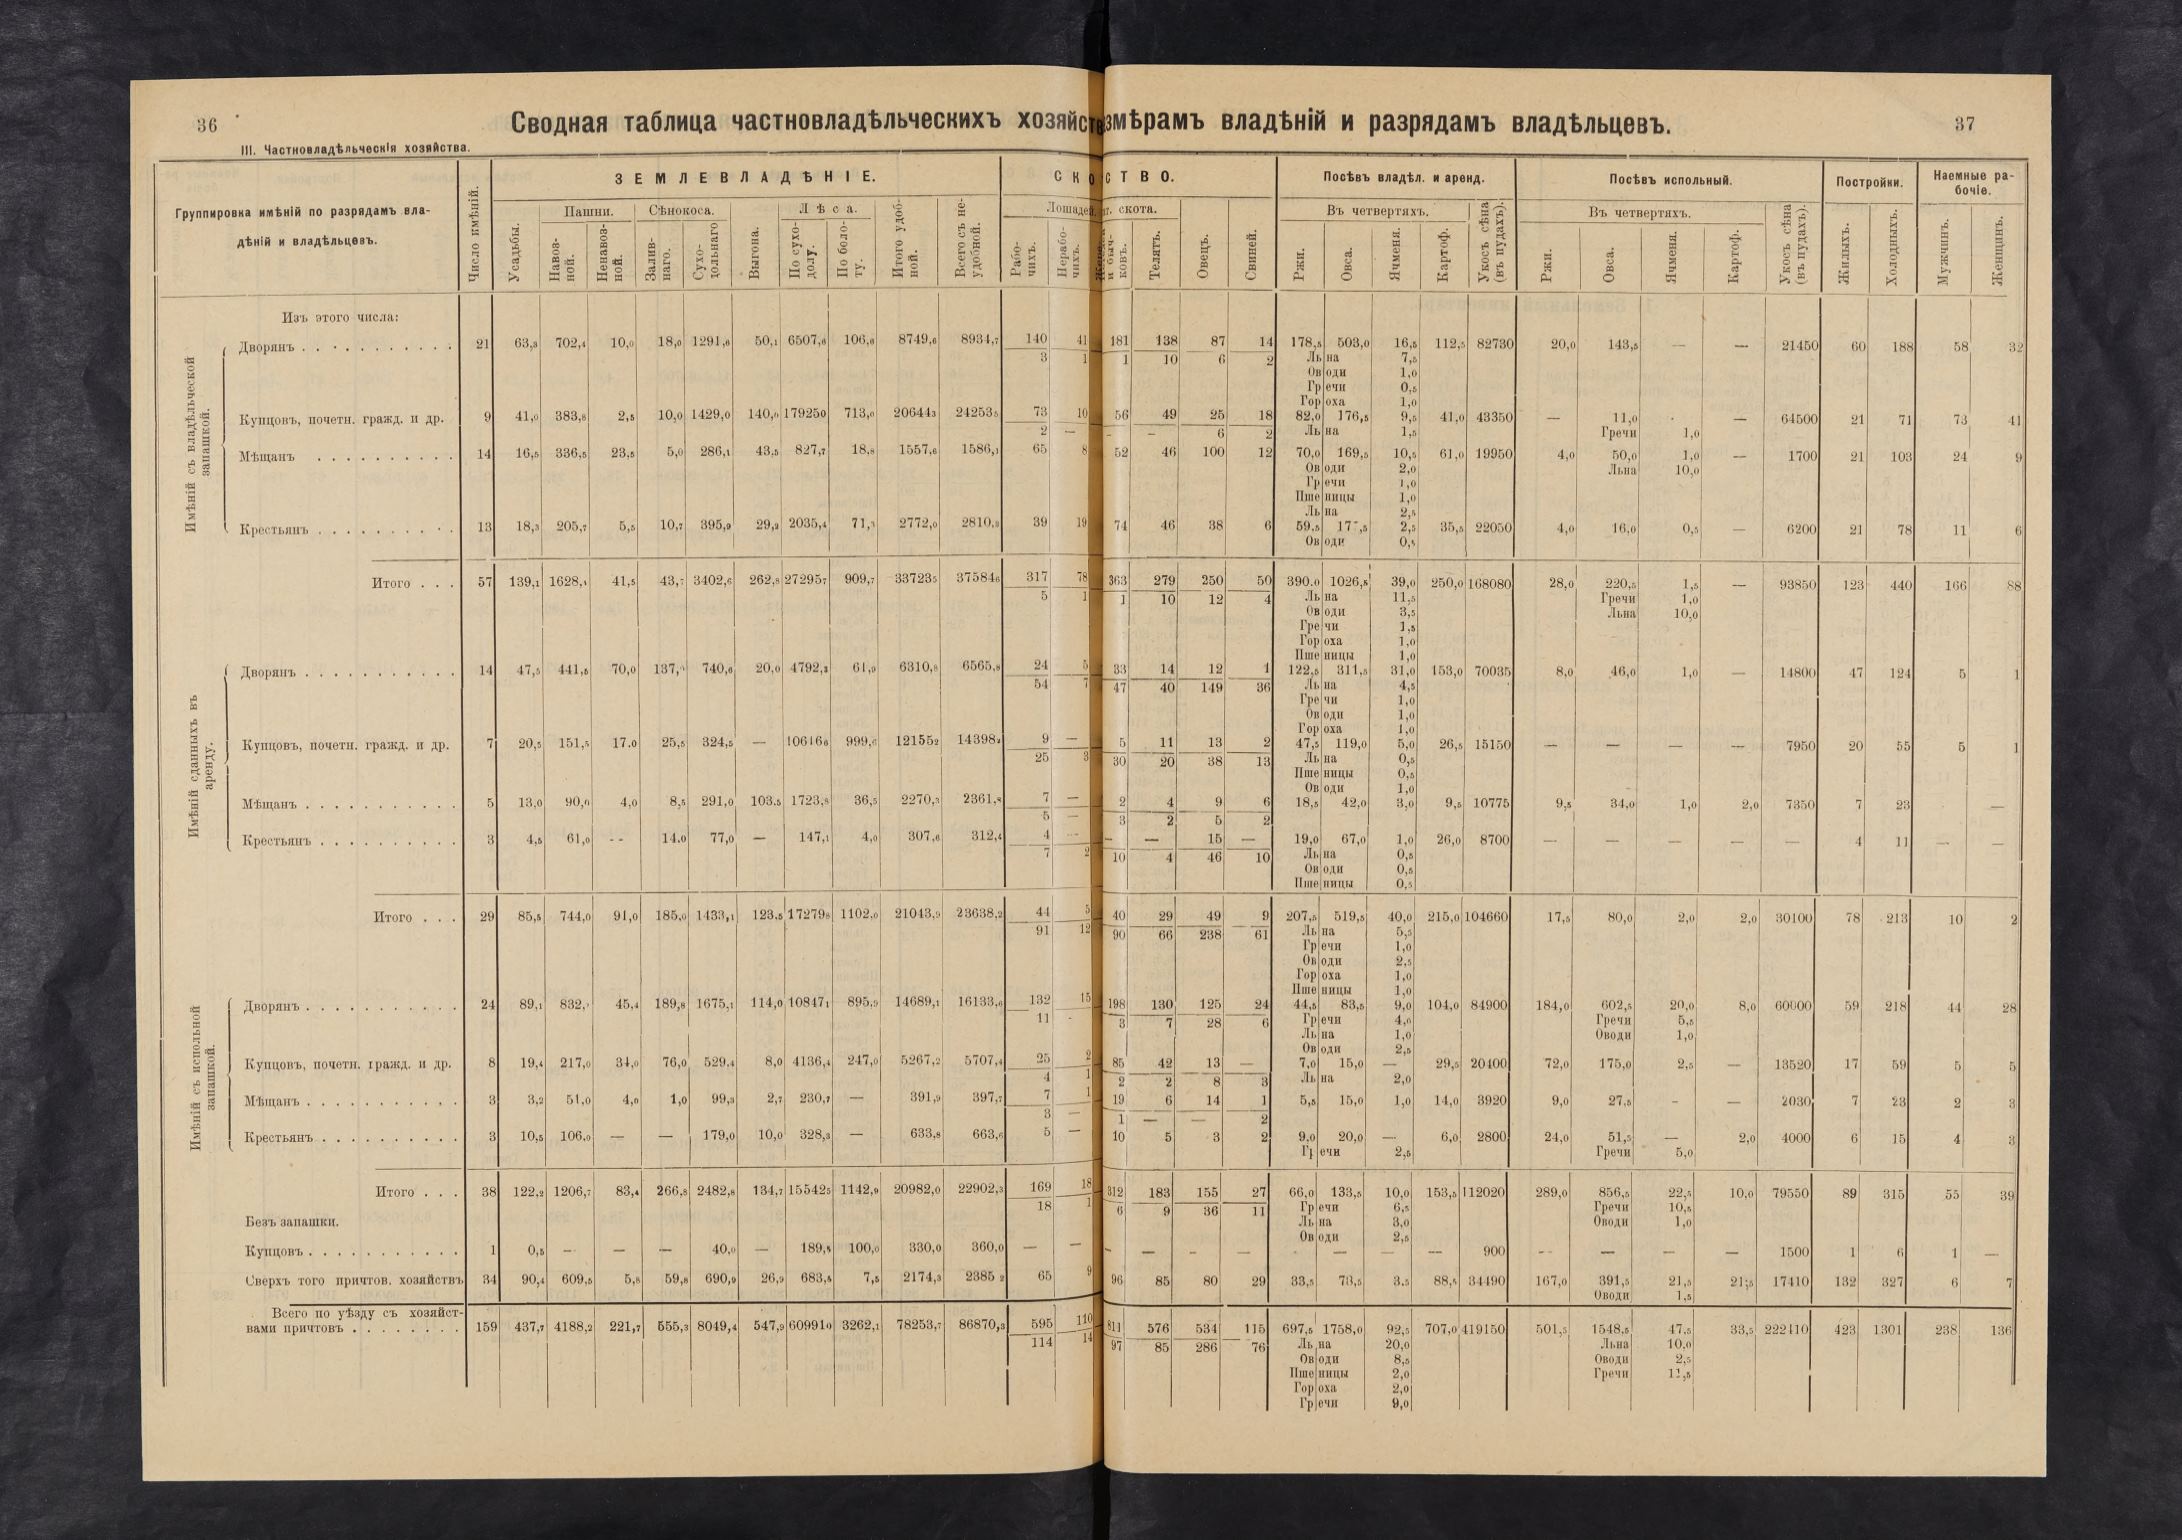 36
Сводная таблица частновладѣльческихъ хозяйств
змѣрамъ владѣній и разрядамъ владѣльцевъ.
37
III. Частновладѣльческія хозяйства.
Группировка имѣній по разрядамъ вла-
дѣній и владѣльцевъ.
Число имѣній.
ЗЕМЛЕВЛАДѢНІЕ.
Усадьбы.
Пашни.
Навоз-
ной.
Ненавоз-
ной.
Сѣнокоса.
Залив-
наго.
Сухо-
дольнаго
Выгона.
Лѣса.
По сухо-
долу.
По боло-
ту.
Итого удоб-
ной.
Всего съ не-
удобной.
СКО
ТВО.
Лошадей
Рабо-
чихъ.
Нерабо-
чихъ.
скота.
и быч-
ковъ.
Телятъ.
Овецъ.
Свиней.
Посѣвъ владѣл. и аренд.
Въ четвертяхъ.
Ржи.
Овса.
Ячменя.
Картоф.
Укосъ сѣна
(въ пудахъ).
Посѣвъ испольный.
Въ четвертяхъ.
Ржи.
Овса.
Ячменя.
Картоф.
Укосъ сѣна
(въ пудахъ).
Постройки.
Жилыхъ.
Холодныхъ.
Наемные ра-
бочіе.
Мужчинъ.
Женщинъ.
Изъ этого числа:
Имѣній съ владѣльческой
запашкой.
Дворянъ . . . . . . . . . . . 21 63,3 702,4 10,0 18,0 1291,6 50,1 6507,6 106,6 8749,6 8934,7 140 41 181 138 87 14 178,5 503,0 16,5 112,5 82730 20,0 143,5 — — 21450 60 188 58 32
3 1 1 10 6 2 Льна 7,5
Оводи 1,0
Гречи 0,5
Гороха 1,0
Купцовъ, почетн. гражд. и др. 9 41,0 383,8 2,5 10,0 1429,0 140,0 179250 713,0 206443 242535 73 10 56 49 25 18 82,0 176,5 9,5 41,0 43350 — 11,0 · — 64500 21 71 73 41
2 — - — 6 2 Льна 1,5 Гречи 1,0
Мѣщанъ . . . . . . . . . . 14 16,5 336,5 23,5 5,0 286,1 43,5 827,7 18,8 1557,6 1586,1 65 8 52 46 100 12 70,0 169,5 10,5 61,0 19950 4,0 50,0 1,0 — 1700 21 103 24 9
Оводи 2,0 Льна 10,0
Гречи 1,0
Пшеницы 1,0
Льна 2,5
Крестьянъ . . . . . . . . . . 13 18,3 205,7 5,5 10,7 395,9 29,2 2035,4 71,3 2772,0 2810,3 39 19 74 46 38 6 59,5 2,5 35,5 22050 4,0 16,0 0,5 — 6200 21 78 11 6
Оводи 0,5
Итого . . . 57 139,1 1628,1 41,5 43,7 3402,6 262,8 272957 909,7 337235 375846 317 78 363 279 250 50 390.0 1026,5 39,0 250,0 168080 28,0 220,5 1,5 — 93850 123 440 166 88
5 1 1 10 12 4 Льна 11,5 Гречи 1,0
Оводи 3,5 Льна 10,0
Гречи 1,5
Гороха 1,0
Пшеницы 1,0
Имѣній сданныхъ въ
аренду.
Дворянъ . . . . . . . . . . . 14 47,5 441,5 70,0 137, 740,6 20,0 4792,3 61,9 6310,8 6565,8 24 5 33 14 12 1 122,5 311,5 31,0 153,0 70035 8,0 46,0 1,0 — 14800 47 124 5 1
54 7 47 40 149 36 Льна 4,5
Гречи 1,0
Оводи 1,0
Гороха 1,0
Купцовъ, почетн. гражд. и др. 7 20,5 151,5 17.0 25,5 324,5 — 106166 999,6 121552 143982 9 — 5 11 13 2 47,5 119,0 5,0 26,5 15150 — — — — 7950 20 55 5 1
25 3 30 20 38 13 Льна 0,5
Пшеницы 0,5
Оводи 1,0
Мѣщанъ . . . . . . . . . . . 5 13,0 90,0 4,0 8,5 291,0 103.5 1723,8 36,5 2270,3 2361,8 7 — 2 4 9 6 18,5 42,0 3,0 9,5 10775 9,5 34,0 1,0 2,0 7350 7 23 —
5 — 3 2 5 2
Крестьянъ . . . . . . . . . . 3 4,5 61,0 -- 14.0 77,0 — 147,1 4,0 307,6 312,4 4 -- - — 15 — 19,0 67,0 1,0 26,0 8700 — — — — — 4 11 — —
7 2 10 4 46 10 Льна 0,5
Оводи 0,5
Пшеницы 0,5
Итого . . . 29 85,5 744,0 91,0 185,0 1433,1 123,5 172798 1102,0 21043,9 23638,2 44 5 40 29 49 9 207,5 519,5 40,0 215,0 104660 17,5 80,0 2,0 2,0 30100 78 213 10 2
91 12 90 66 238 61 Льна 5,5
Гречи 1,0
Оводи 2,5
Гороха 1,0
Пшеницы 1,0
Имѣній съ испольной
запашкой.
Дворянъ . . . . . . . . . . . 24 89,1 832, 45,4 189,8 1675,1 114,0 108471 895,9 14689,1 16133,6 132 15 198 130 125 24 44,5 83,5 9,0 104,0 84900 184,0 602,5 20,0 8,0 60000 59 218 44 28
11 - 3 7 28 6 Гречи 4,0 Гречи 5,5
Льна 1,0 Оводи 1,0
Оводи 2,5
Купцовъ, почетн. гражд. и др. 8 19,4 217,0 34,0 76,0 529,4 8,0 4136,4 247,0 5267,2 5707,4 25 2 85 42 13 — 7,0 15,0 — 29,5 20400 72,0 175,0 2,5 — 13520 17 59 5 5
4 1 2 2 8 3 Льна 2,0
Мѣщанъ . . . . . . . . . . . 3 3,2 51,0 4,0 1,0 99,3 2,7 230,7 — 391,9 397,7 7 1 19 6 14 1 5,5 15,0 1,0 14,0 3920 9,0 27,5 - — 2030 7 23 2 3
3 — 1 — — 2
Крестьянъ . . . . . . . . . . 3 10,5 106,0 — — 179,0 10,0 328,3 — 633,8 663,6 5 — 10 5 3 2 9,0 20,0 — 6,0 2800 24,0 51,5 — 2,0 4000 6 15 4 3
Гречи 2,5 Гречи 5,0
Итого . . . 38 122,2 1206,7 83,4 266,8 2482,8 134,7 155425 1142,9 20982,0 22902,3 169 18 312 183 155 27 66,0 133,5 10,0 153,5 112020 289,0 856,5 22,5 10,0 79550 89 315 55 39
18 1 6 9 36 11 Гречи 6,5 Гречи 10,5
Льна 3,0 Оводи 1,0
Оводи 2,5
Безъ запашки.
Купцовъ . . . . . . . . . . . 1 0,5 — — — 40,0 — 189,5 100,0 330,0 360,0 — — - — - — — — — — 900 -- — — — 1500 1 6 1 —
Сверхъ того причтов. хозяйствъ 34 90,4 609,5 5,8 59,8 690,9 26,9 683,5 7,5 2174,3 2385 2 65 9 96 85 80 29 33,5 78,5 3.5 88,5 34490 167,0 391,5 21,5 21,5 17410 132 327 6 7
Оводи 1,5
Всего по уѣзду съ хозяйст-
вами причтовъ . . . . . . . . 159 437,7 4188,2 221,7 555,3 8049,4 547,9 609910 3262,1 78253,7 86870,3 595 110 811 576 534 115 697,5 1758,0 92,5 707,0 419150 501,5 1548,5 47,5 33,5 222110 423 1301 238 136
114 14 97 85 286 76 Льна 20,0 Льна 10,0
Оводи 8,5 Оводи 2,5
Пшеницы 2,0 Гречи 11,5
Гороха 2,0
Гречи 9,0